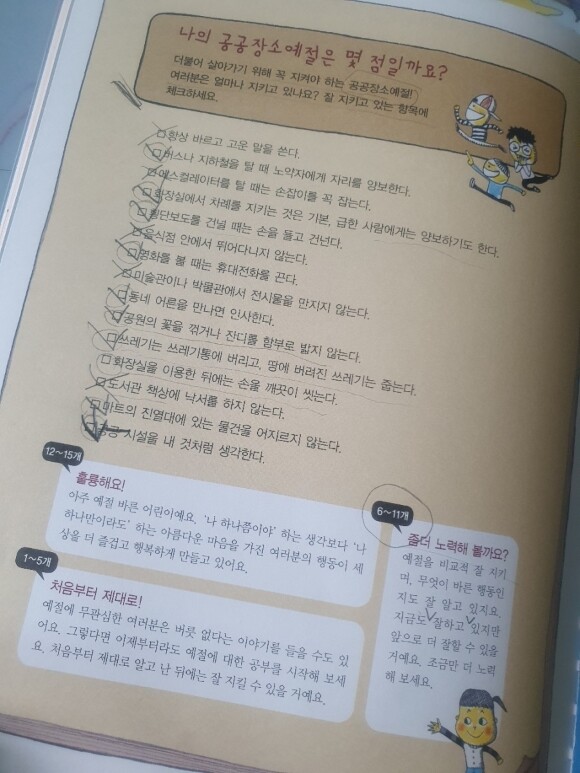 나의 공공장소예절은 몇 점일까요?
더불어 살아가기 위해 꼭 지켜야 하는 공공장소예절!
여러분은 얼마나 지키고 있나요? 잘 지키고 있는 항목에
체크하세요.
□항상 바르고 고운 말을 쓴다.
□버스나 지하철을 탈 때 노약자에게 자리를 양보한다.
□에스컬레이터를 탈 때는 손잡이를 꼭 잡는다.
□화장실에서 차례를 지키는 것은 기본, 급한 사람에게는 양보하기도 한다.
□횡단보도를 건널 때는 손을 들고 건넌다.
□음식점 안에서 뛰어다니지 않는다.
□영화를 볼 때는 휴대전화를 끈다.
□미술관이나 박물관에서 전시물을 만지지 않는다.
□동네 어른을 만나면 인사한다.
□공원의 꽃을 꺾거나 잔디를 함부로 밟지 않는다.
□쓰레기는 쓰레기통에 버리고, 땅에 버려진 쓰레기는 줍는다.
□화장실을 이용한 뒤에는 손을 깨끗이 씻는다.
□도서관 책상에 낙서를 하지 않는다.
□마트의 진열대에 있는 물건을 어지르지 않는다.
□공공 시설을 내 것처럼 생각한다.
12~15개
훌륭해요!
아주 예절 바른 어린이예요. '나 하나쯤이야' 하는 생각보다 '나
하나만이라도' 하는 아름다운 마음을 가진 여러분의 행동이 세
상을 더 즐겁고 행복하게 만들고 있어요.
6~11개
좀더 노력해 볼까요?
예절을 비교적 잘 지키
며, 무엇이 바른 행동인
지도 잘 알고 있지요.
지금도 잘하고 있지만
앞으로 더 잘할 수 있을
거예요. 조금만 더 노력
해 보세요.
1~5개
처음부터 제대로!
예절에 무관심한 여러분은 버릇 없다는 이야기를 들을 수도 있
어요. 그렇다면 이제부터라도 예절에 대한 공부를 시작해 보세
요. 처음부터 제대로 알고 난 뒤에는 잘 지킬 수 있을 거예요.